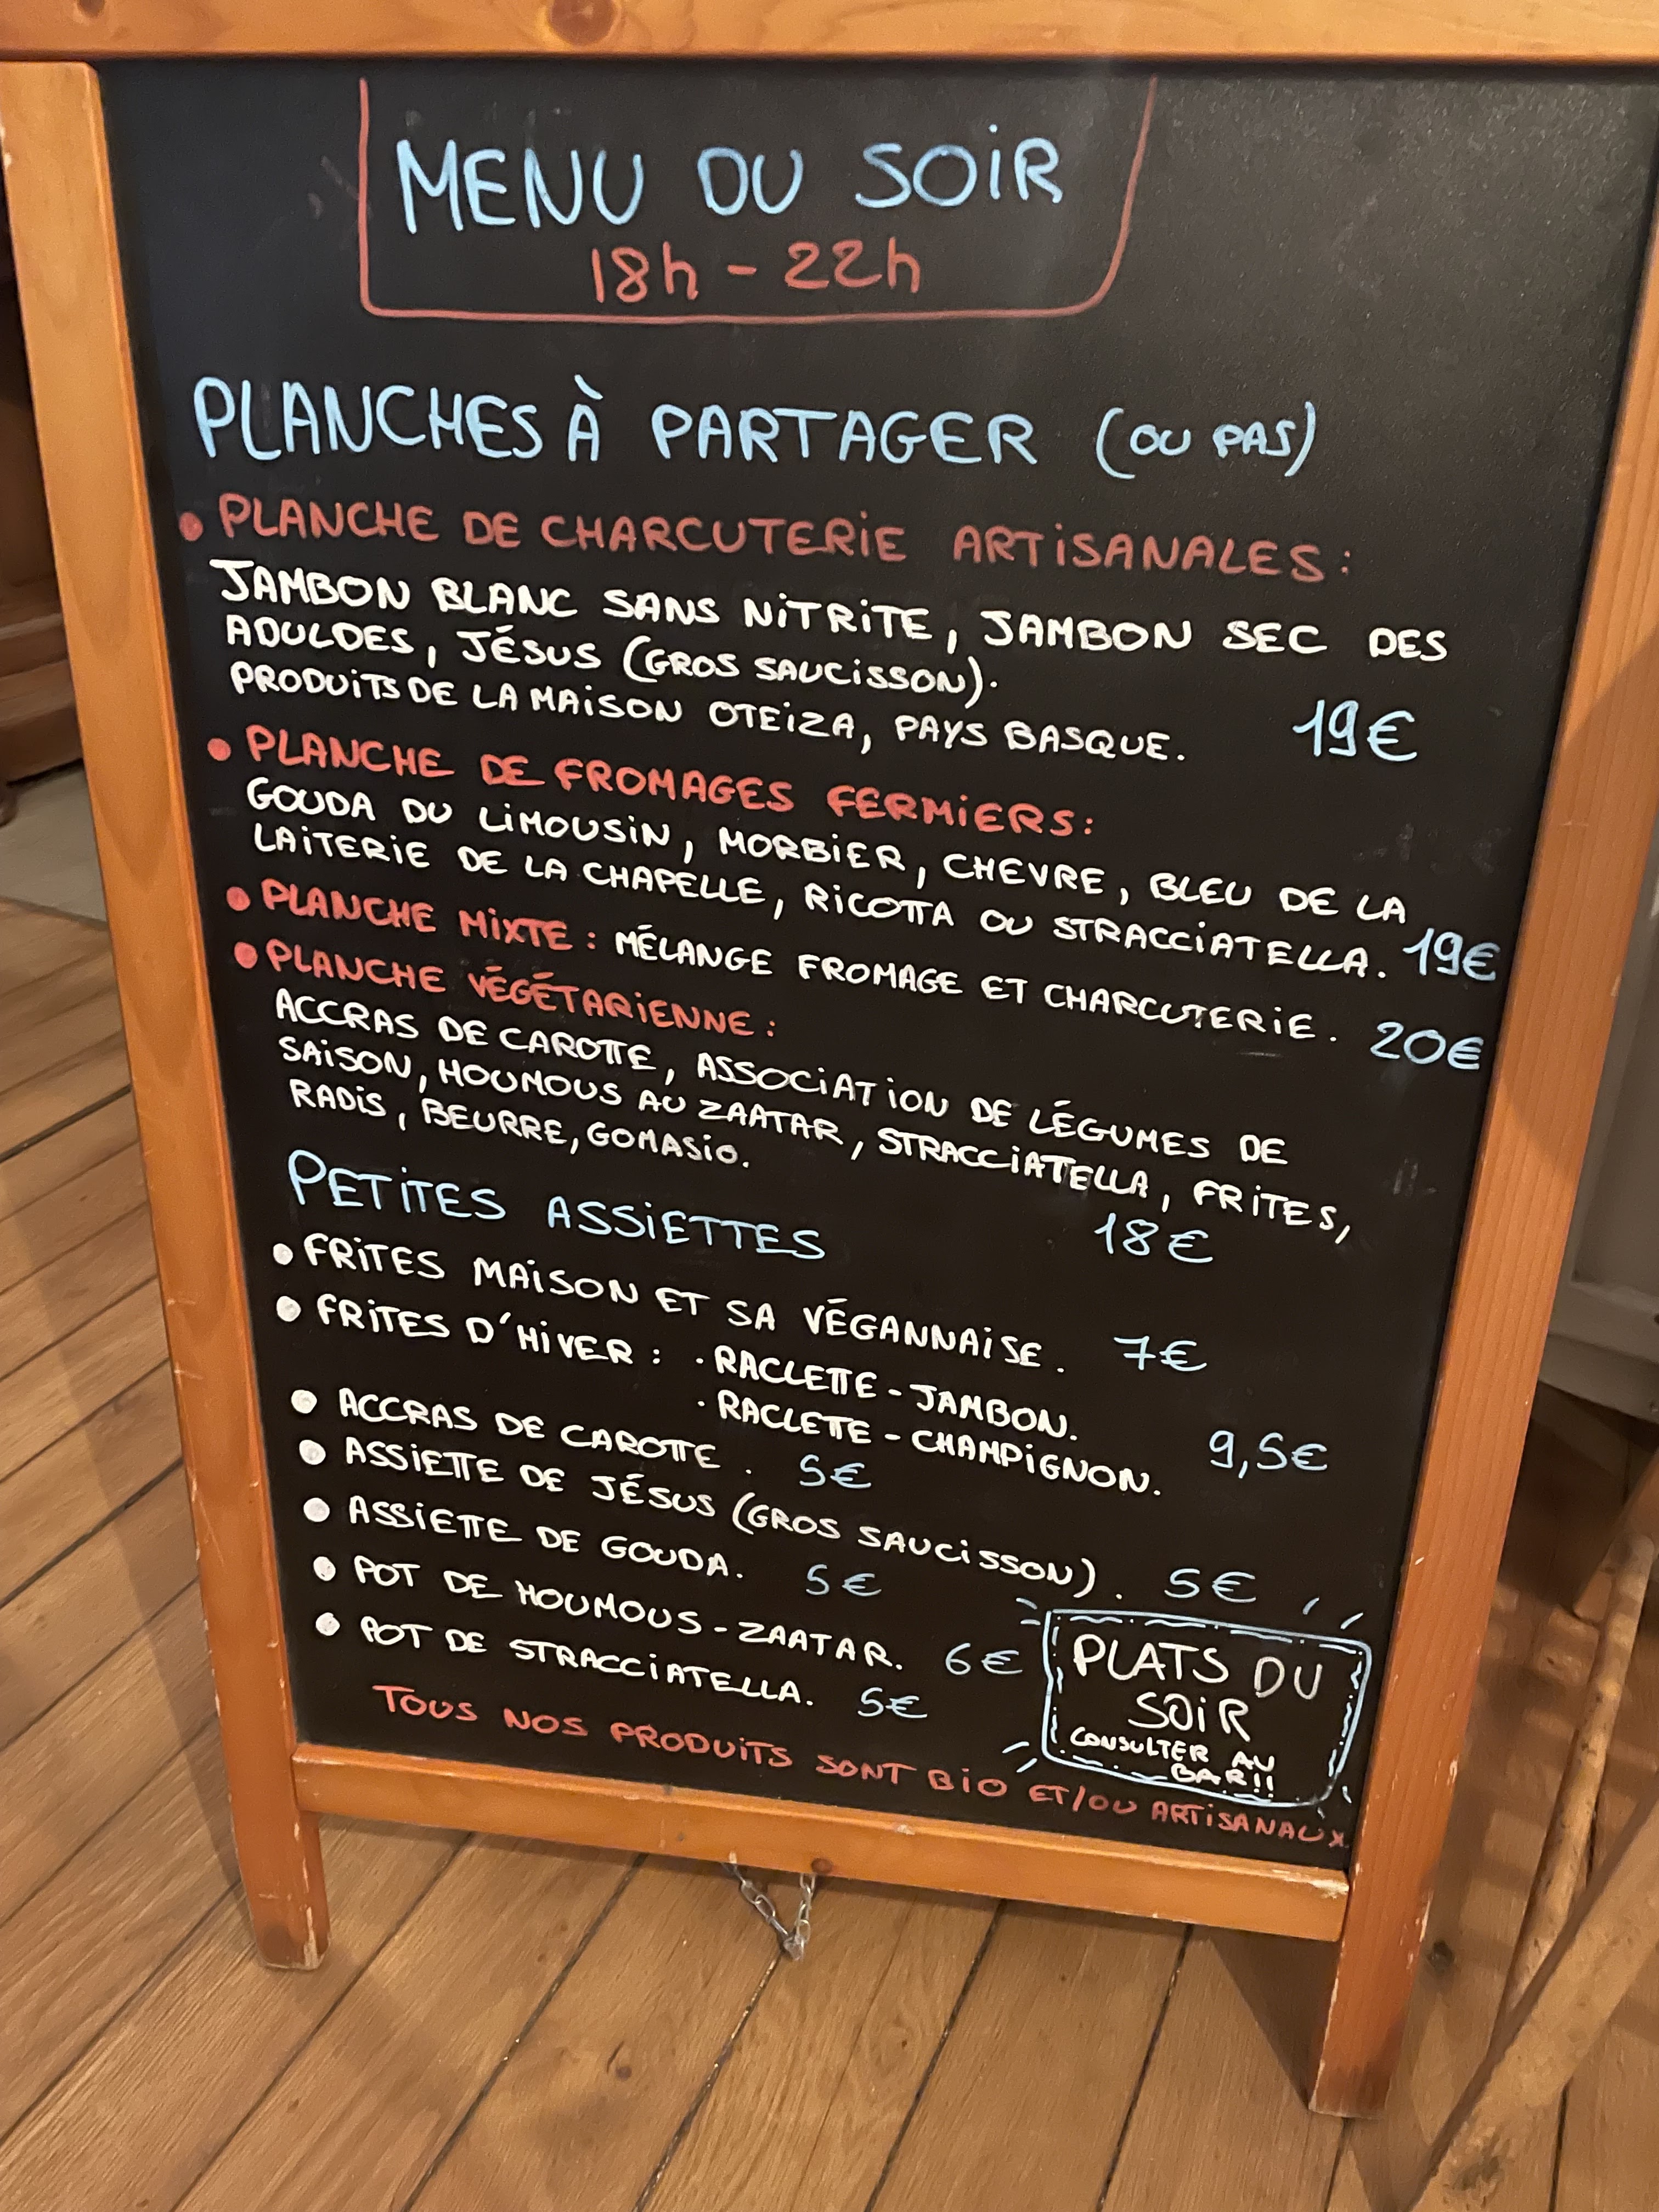 MENU DU SOIR
18h - 22h
PLANCHES À PARTAGER (OU PAS)
• PLANCHE DE CHARCUTERIE ARTISANALES :
JAMBON BLANC SANS NITRITE, JAMBON SEC DES
ADULDES, JÉSUS (GROS SAUCISSON).
PRODUITS DE LA MAISON OTEIZA, PAYS BASQUE. 19€
• PLANCHE DE FROMAGES FERMIERS :
GOUDA DU LIMOUSIN, MORBIER, CHEVRE, BLEU DE LA
LAITERIE DE LA CHAPELLE, RICOTTA OU STRACCIATELLA. 19€
• PLANCHE MIXTE : MÉLANGE FROMAGE ET CHARCUTERIE. 20€
• PLANCHE VÉGÉTARIENNE :
ACCRAS DE CAROTTE, ASSOCIATION DE LÉGUMES DE
SAISON, HOUMOUS AU ZAATAR, STRACCIATELLA, FRITES,
RADIS, BEURRE, GOMASIO. 18€
PETITES ASSIETTES
• FRITES MAISON ET SA VÉGANNAISE. 7€
• FRITES D'HIVER : · RACLETTE - JAMBON.
· RACLETTE - CHAMPIGNON. 9,5€
• ACCRAS DE CAROTTE. 5€
• ASSIETTE DE JÉSUS (GROS SAUCISSON). 5€
• ASSIETTE DE GOUDA. 5€
• POT DE HOUMOUS - ZAATAR. 6€
• POT DE STRACCIATELLA. 5€
PLATS DU
SOIR
CONSULTER AU
BAR!!
TOUS NOS PRODUITS SONT BIO ET/OU ARTISANAUX